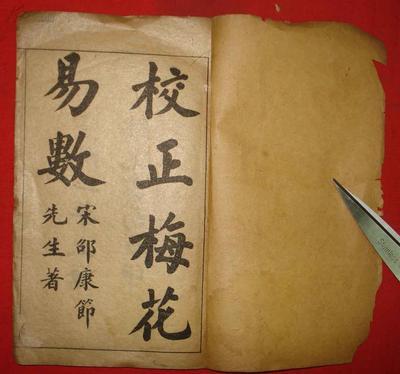 校正梅花
易數
宋邵康節
先生著
Stainless